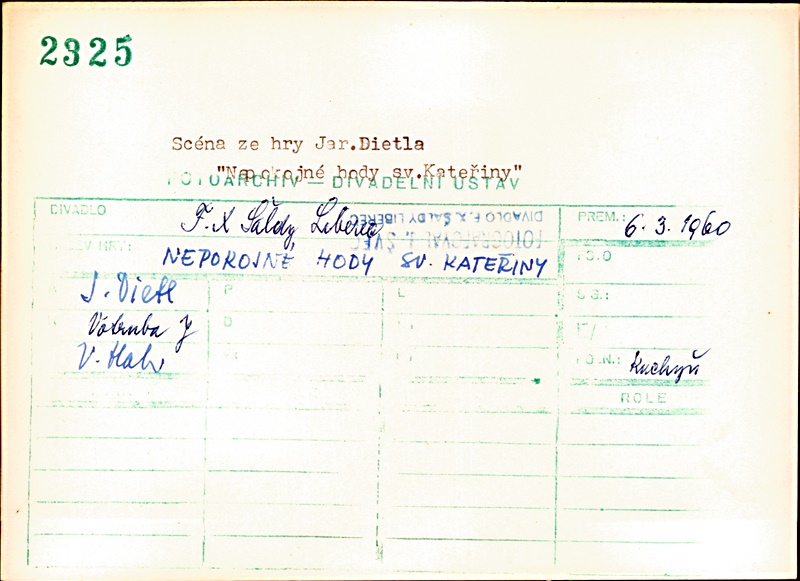 2325
Scéna ze hry Jar.Dietla
"Nepokojné hody sv.Kateřiny"
FOTOARCHIV — DIVADELNÍ ÚSTAV
DIVADLO F.X Šaldy Liberec PREM.: 6. 3. 1960
DIVADLO F. X. ŠALDY LIBEREC
FOTOGRAFOVAL J. ŠVEC
NEPOKOJNÉ HODY SV. KATEŘINY
J. Dietl P L
Votruba J D
V. Hab
Kuchyň
ROLE